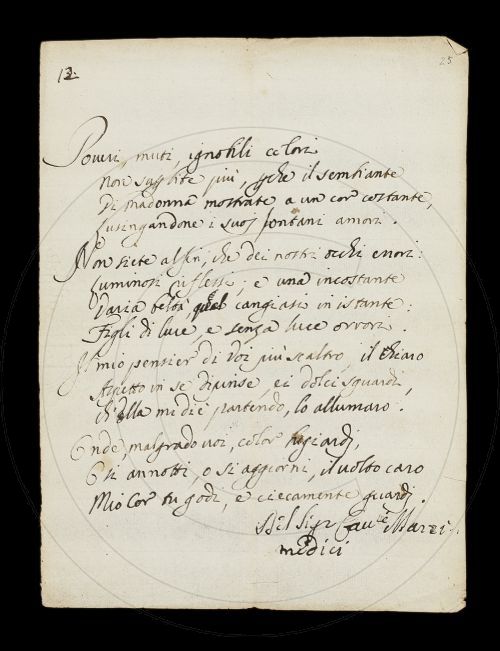 12.
25
Poveri, muti, ignobili colori
Non sapete più, che il sembiante
Di Madonna mostrate a un cor costante,
Lusingandone i suoi lontani amori.
Non siete alfin, che dei nostri occhi errori:
Luminosi riflessi; e una incostante
Varia beltà, cangiasi in istante:
Figli di luce, e senza luce orrori.
Il mio pensier di voi più scaltro, il chiaro
Aspetto in se dipinse, e i dolci sguardi,
Ch'ella mi diè partendo, lo allumaro.
Onde malgrado voi, color bugiardi,
O si annotti o si aggiorni, il volto caro
Mio Cor tu godi, e ciecamente guardi.
Del Sigr Cavre
medici